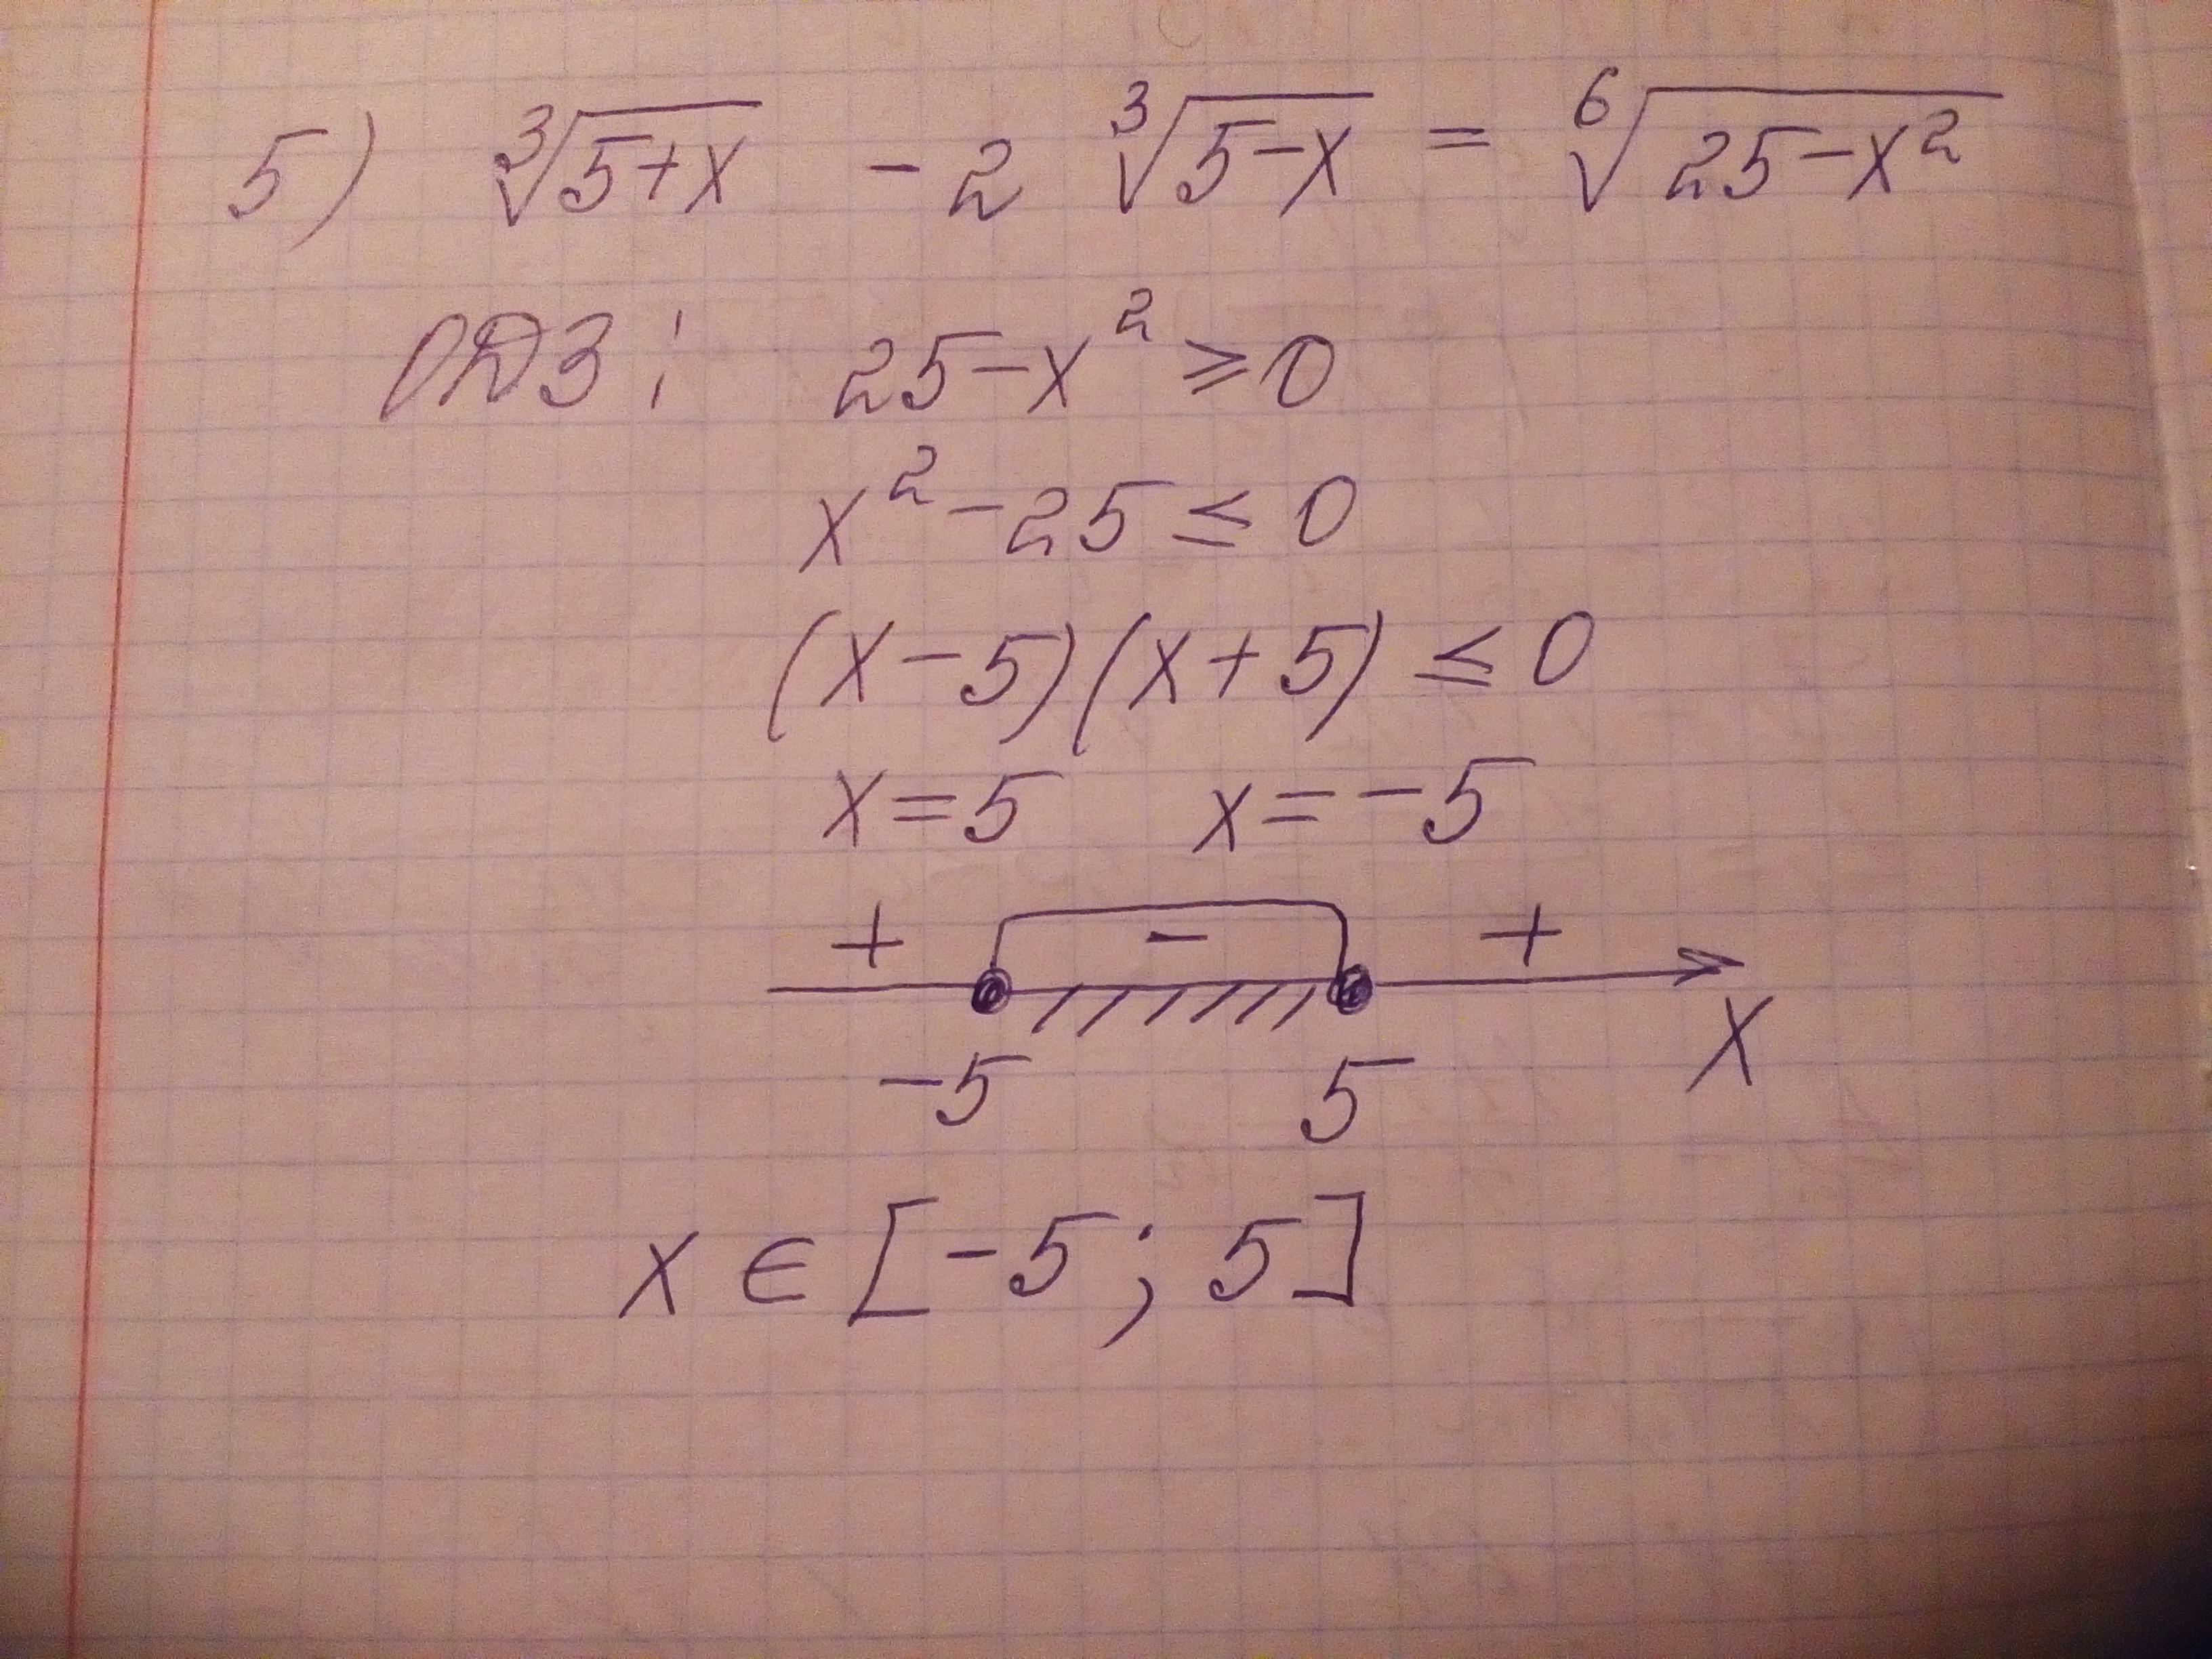 5) ∛(5+x) - 2 ∛(5-x) = ⁶√(25-x²)
ОДЗ: 25-x² ≥ 0
x² - 25 ≤ 0
(x-5)(x+5) ≤ 0
x=5 x=-5
+ - +
-5 5 x
x ∈ [-5; 5]